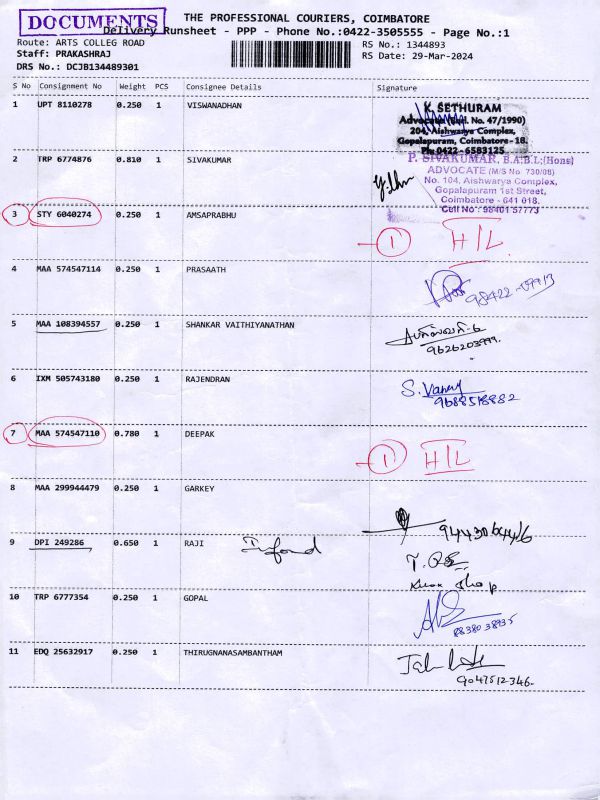 DOCUMENTS
THE PROFESSIONAL COURIERS, COIMBATORE
Delivery Runsheet - PPP - Phone No.:0422-3505555 - Page No.:1
Route: ARTS COLLEG ROAD RS No.: 1344893
Staff: PRAKASHRAJ RS Date: 29-Mar-2024
DRS No.: DCJB134489301
S No Consignment No Weight PCS Consignee Details Signature
1 UPT 8110278 0.250 1 VISWANADHAN
K. SETHURAM
Advocate (Enl. No. 47/1990)
204, Aishwarya Complex,
Gopalapuram, Coimbatore-18.
Ph: 0422-6583125
2 TRP 6774876 0.810 1 SIVAKUMAR
P. SIVAKUMAR, B.A.B.L.,(Hons)
ADVOCATE (M/S No 730/08)
No. 104, Aishwarya Complex,
Gopalapuram 1st Street,
Coimbatore - 641 018.
Cell No : 98401 57773
3 STY 6040274 0.250 1 AMSAPRABHU
1 H/L
4 MAA 574547114 0.250 1 PRASAATH
98422
5 MAA 108394557 0.250 1 SHANKAR VAITHIYANATHAN
9626203999.
6 IXM 505743180 0.250 1 RAJENDRAN
9688518882
7 MAA 574547110 0.780 1 DEEPAK
1 H/L
8 MAA 299944479 0.250 1 GARKEY
9 DPI 249286 0.650 1 RAJI
10 TRP 6777354 0.250 1 GOPAL
8838038935
11 EDQ 25632917 0.250 1 THIRUGNANASAMBANTHAM
9047512346.